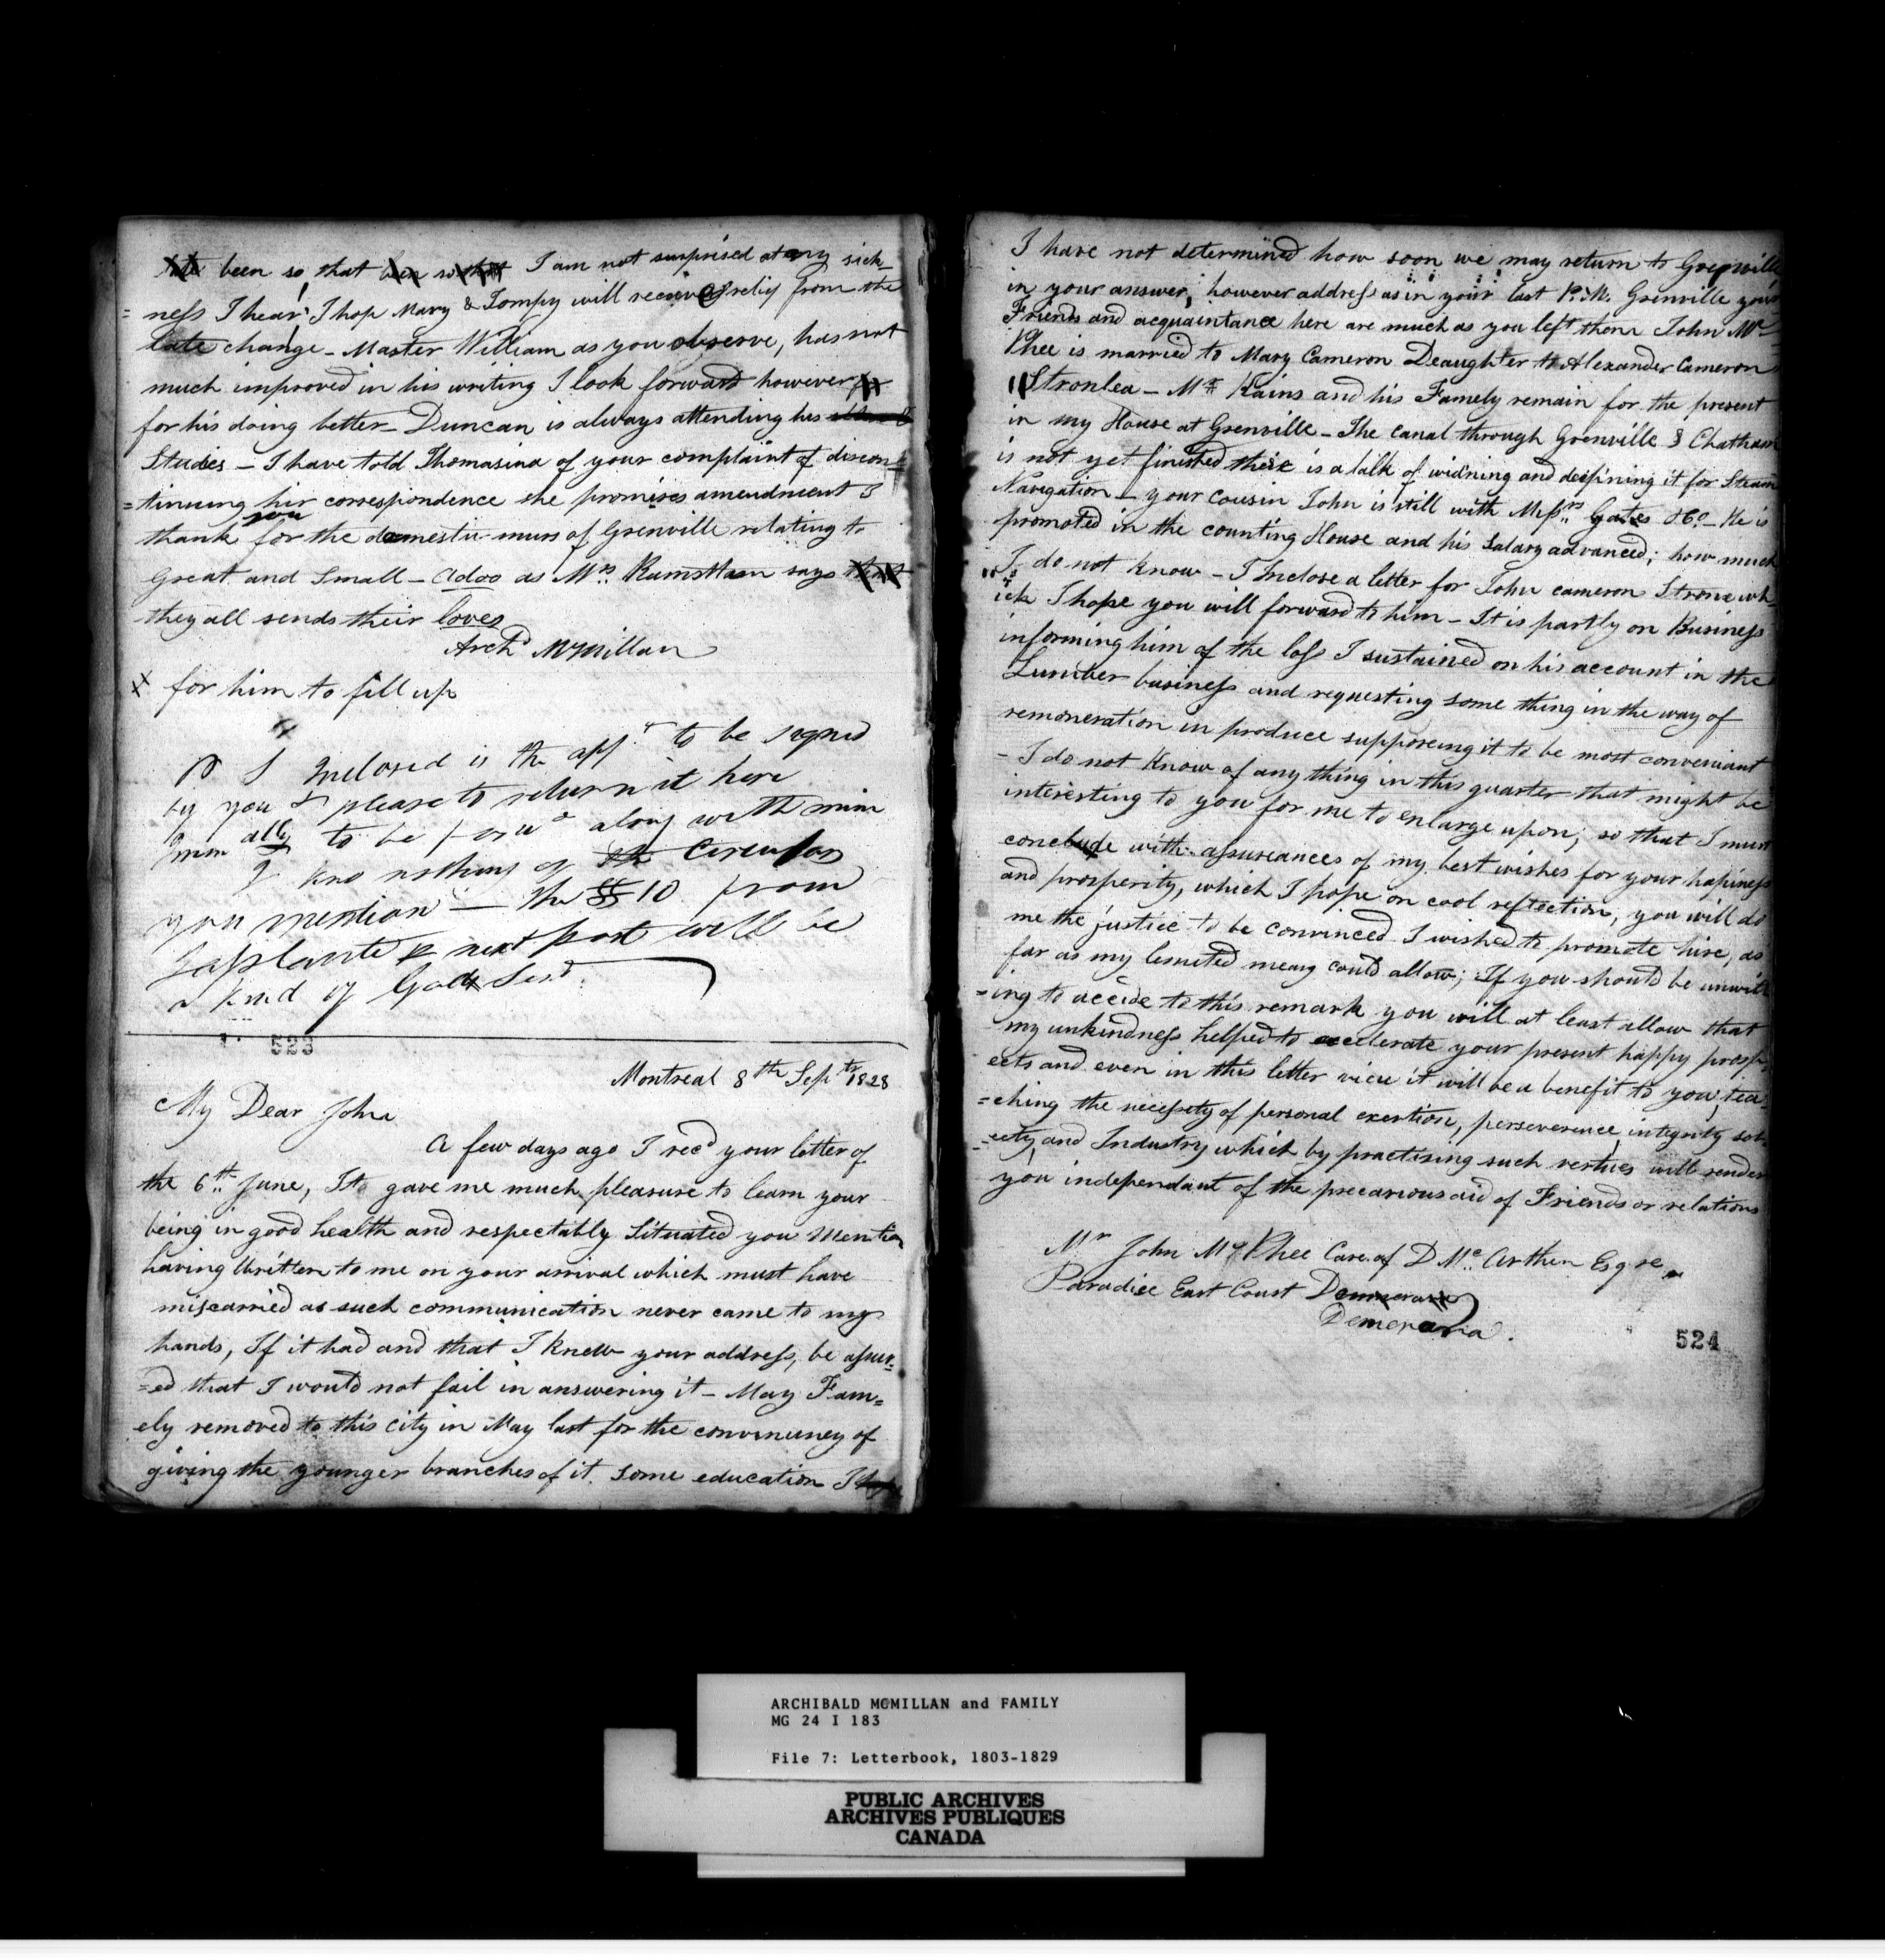 been so, that I am not surprised at any sick
=ness I hear I hop Mary & Tompy will receive relief from the
late change - Master William as you observe, has not
much improved in his writing I look forward however
for his doing better - Duncan is always attending his
Studies - I have told Thomasina of your complaint of discon
=tinuing hir correspondence she promises amendment I
thank you for the domestic muss of Grenville relating to
Great and Small - adoo as Mrs. says
they all sends their loves
Archd McMillan
X for him to fill up
P S Inclosed is the appt to be signed
by you & please to return it here
to be forwd along with mine
I kno nothing of the Circular
you mention — The $10 from
Laplante p next post will be
a kind of God Send
523
Montreal 8th Septr 1828
My Dear John
A few days ago I recd your letter of
the 6th June, It gave me much pleasure to learn your
being in good health and respectably Situated you Mention
having Written to me on your arrival which must have
miscarried as such communication never came to my
hands, If it had and that I knew your address, be assur=
=ed that I would not fail in answering it - May Fam=
ely removed to this city in May last for the conveniency of
giving the younger branches of it some education I
I have not determined how soon we may return to Grenville
in your answer; however address as in your last P. M. Grenville your
Friends and acquaintance here are much as you left them John Mc
Phee is married to Mary Cameron Deaughter to Alexander Cameron
Stronlea - Mr Kains and his Famely remain for the present
in my House at Grenville - The Canal through Grenville & Chatham
is not yet finished there is a talk of widning and deepining it for Steam
Navigation - your Cousin John is still with Messrs Gates & Co - He is
promoted in the counting House and his Salary advanced; how much
I do not know - I Inclose a letter for John Cameron Strone wh
ich I hope you will forward to him - It is partly on Business
informing him of the loss I sustained on his account in the
Lumber business and requesting some thing in the way of
remoneration in produce supposeing it to be most conveniant
- I do not know of any thing in this quarter that might be
interesting to you for me to enlarge upon; so that I must
conclude with assureances of my best wishes for your hapiness
and prosperity, which I hope on cool reflection, you will do
me the justice to be convinced I wished to promote hire, as
far as my lemeted means could allow; If you should be unwill
=ing to accide to this remark you will at least allow that
my unkindness helped to accelerate your present happy prosp
ects and even in this letter view it will be a benefit to you, tea
=ching the necessety of personal exertion, perseverence, integrity sob
=eety, and Industry which by practising such vertues will render
you independant of the precarious aid of Friends or relations
Mr John McPhee Care of D Mc. Arthur Esqre
Paradise East Coast
Demeraria.
524
ARCHIBALD MCMILLAN and FAMILY
MG 24 I 183
File 7: Letterbook, 1803-1829
PUBLIC ARCHIVES
ARCHIVES PUBLIQUES
CANADA